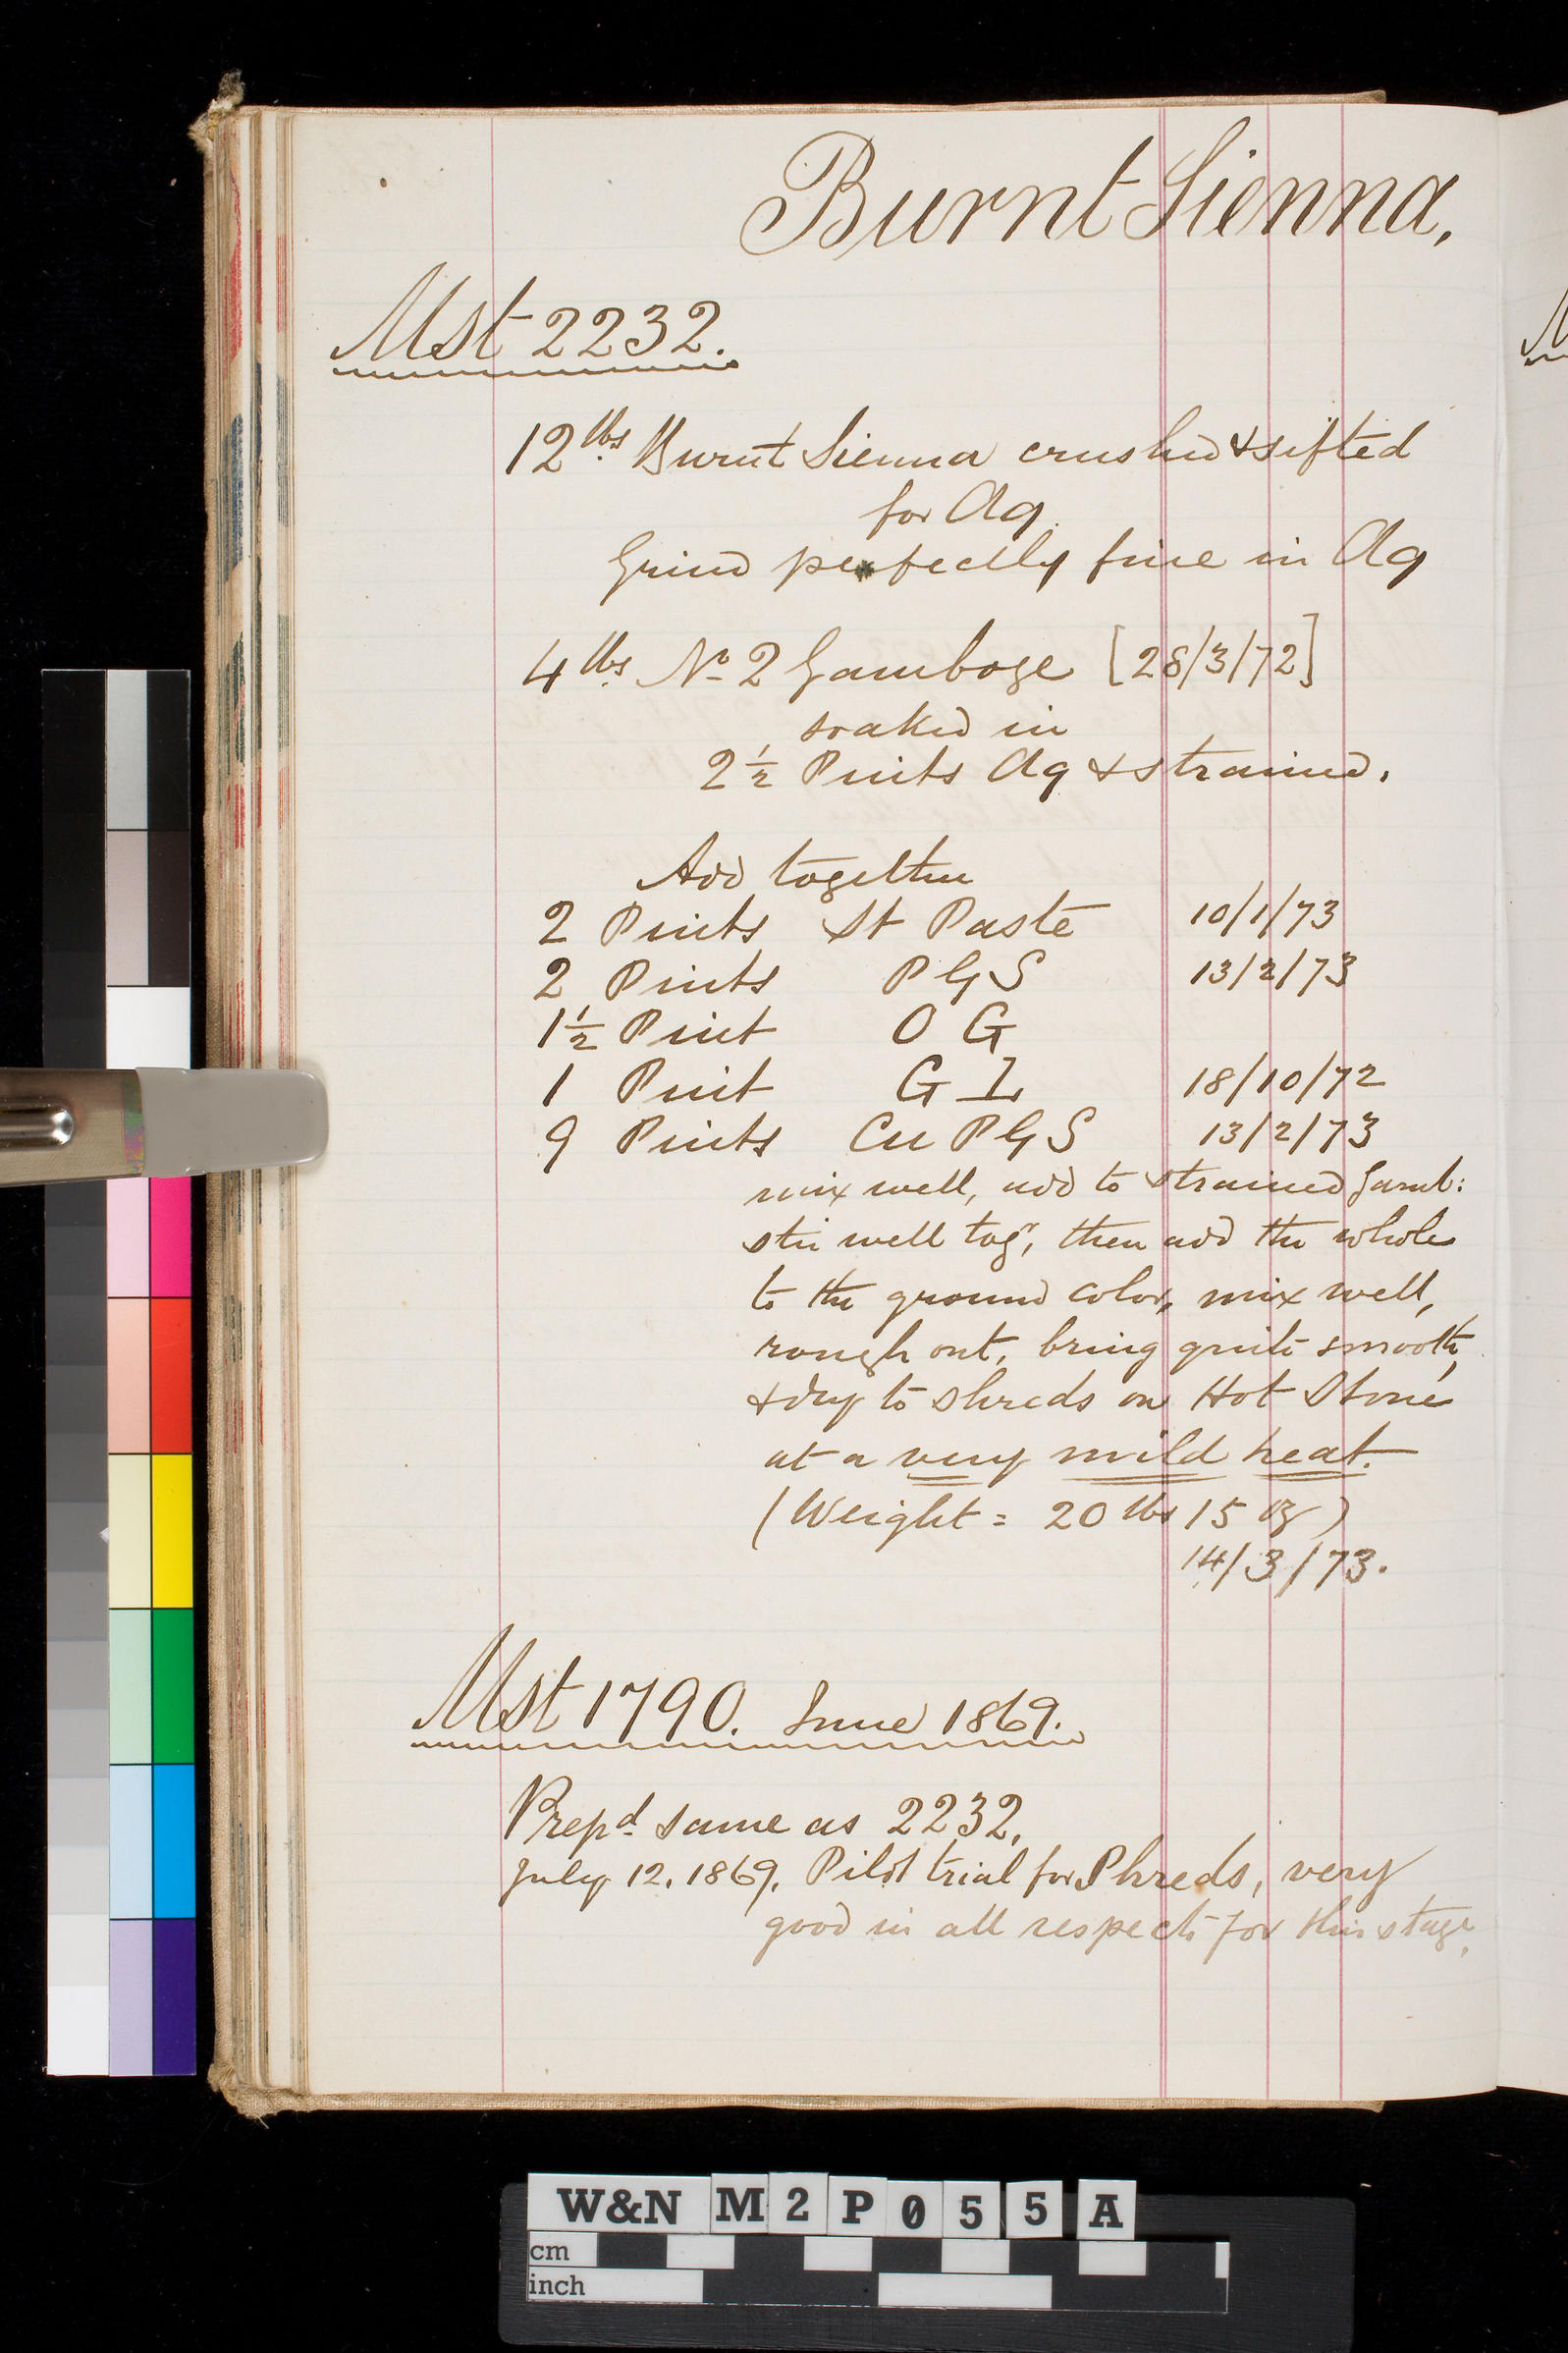 Burnt Sienna,
Mst 2232.
12 lbs Burnt Sienna crushed & sifted
for Aq.
Grind perfectly fine in Aq
4 lbs No 2 Gamboge [28/3/72]
soaked in
2 1/2 Pints Aq & strained.
Add together
2 Pints St Paste 10/1/73
2 Pints P G S 13/2/73
1 1/2 Pint O G
1 Pint G I 18/10/72
9 Pints Cu P G S 13/2/73
mix well, add to strained Gamb:
stir well togr, then add the whole
to the ground color, mix well,
rough out, bring quite smooth,
& dry to shreds on Hot Stone
at a very mild heat.
(Weight = 20 lbs 15 oz)
14/3/73.
Mst 1790. June 1869.
Prepd same as 2232.
July 12. 1869. Pilot trial for Shreds, very
good in all respects for this stage.
W&N M2P055A
cm
inch